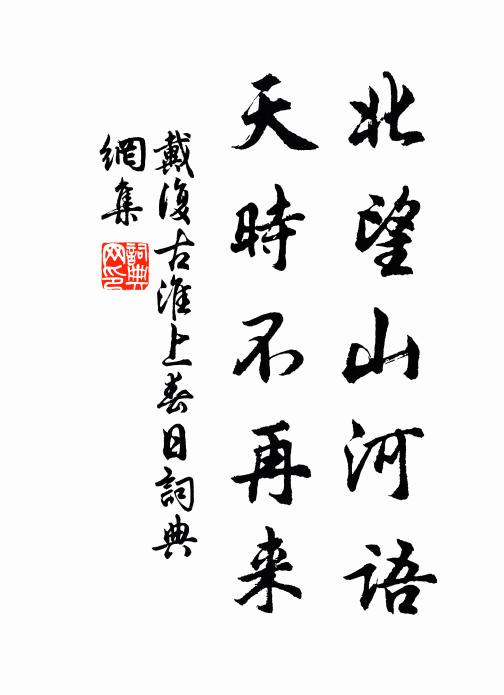 北望山河語
天時不再来
戴復古淮上春日詞典
網集
詞典
网印